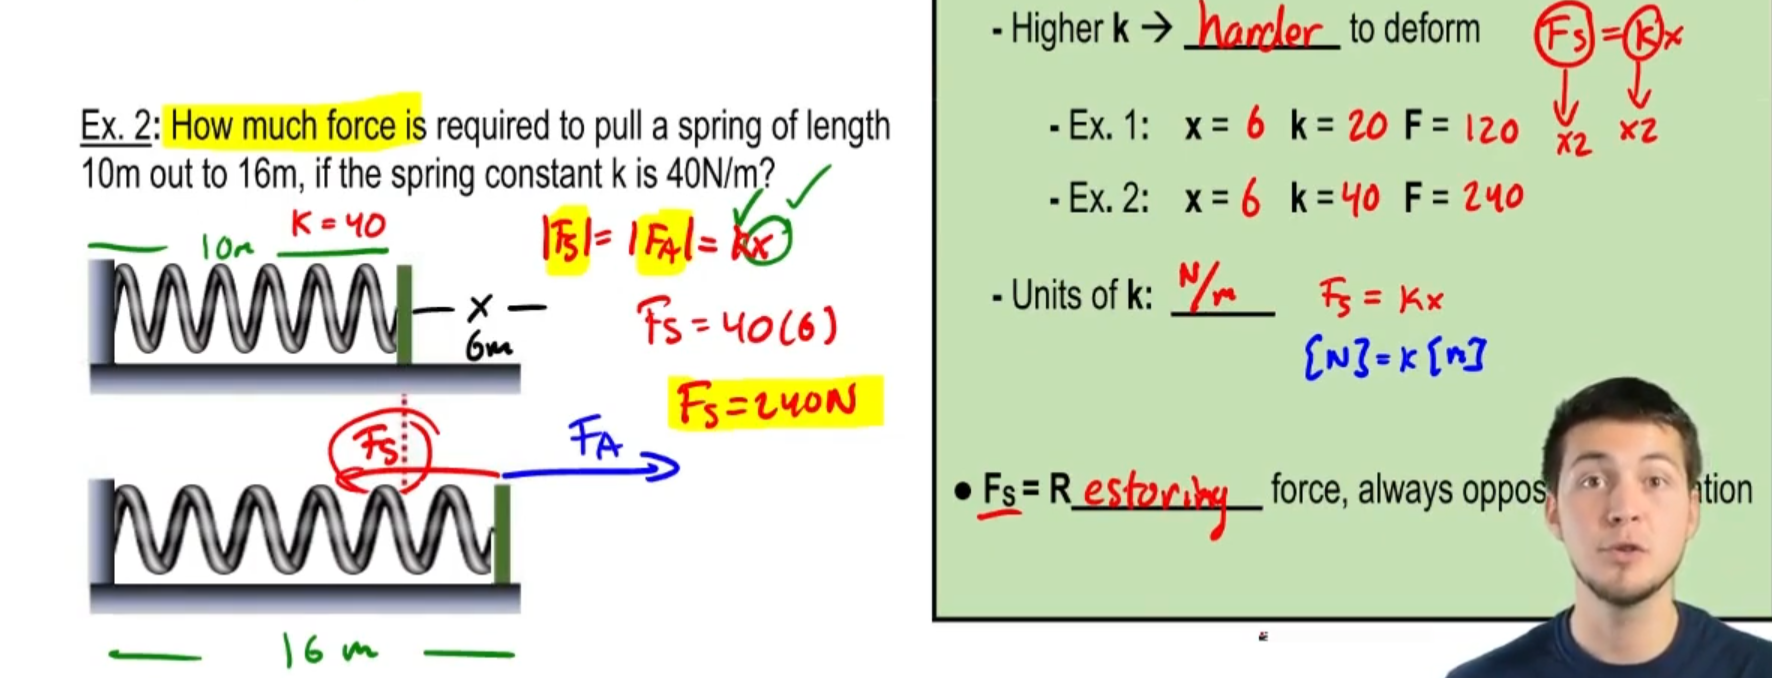 Ex. 2: How much force is required to pull a spring of length
10m out to 16m, if the spring constant k is 40N/m?
K = 40
10m
|Fs| = |FA| = kx
x
6m
Fs = 40(6)
Fs = 240N
Fs
FA
16 m
- Higher k → harder to deform
Fs = kx
x2 x2
- Ex. 1: x = 6 k = 20 F = 120
- Ex. 2: x = 6 k = 40 F = 240
- Units of k: N/m
Fs = Kx
[N] = K [m]
• Fs = Restoring force, always